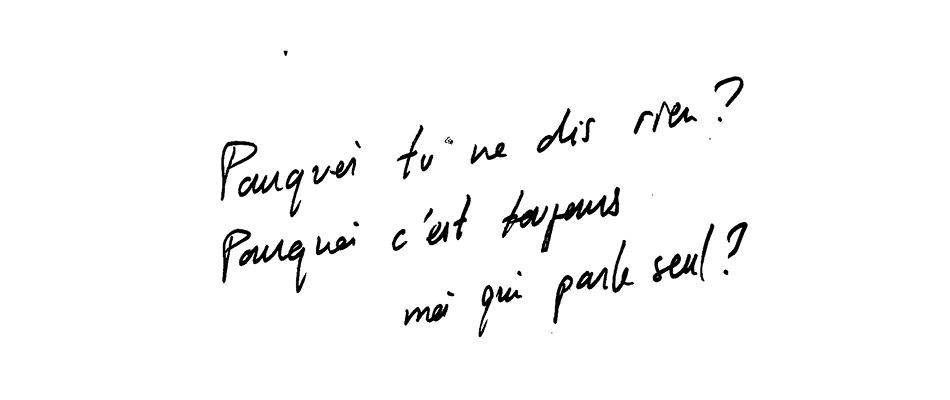 Pourquoi tu ne dis rien ?
Pourquoi c'est toujours
moi qui parle seul ?